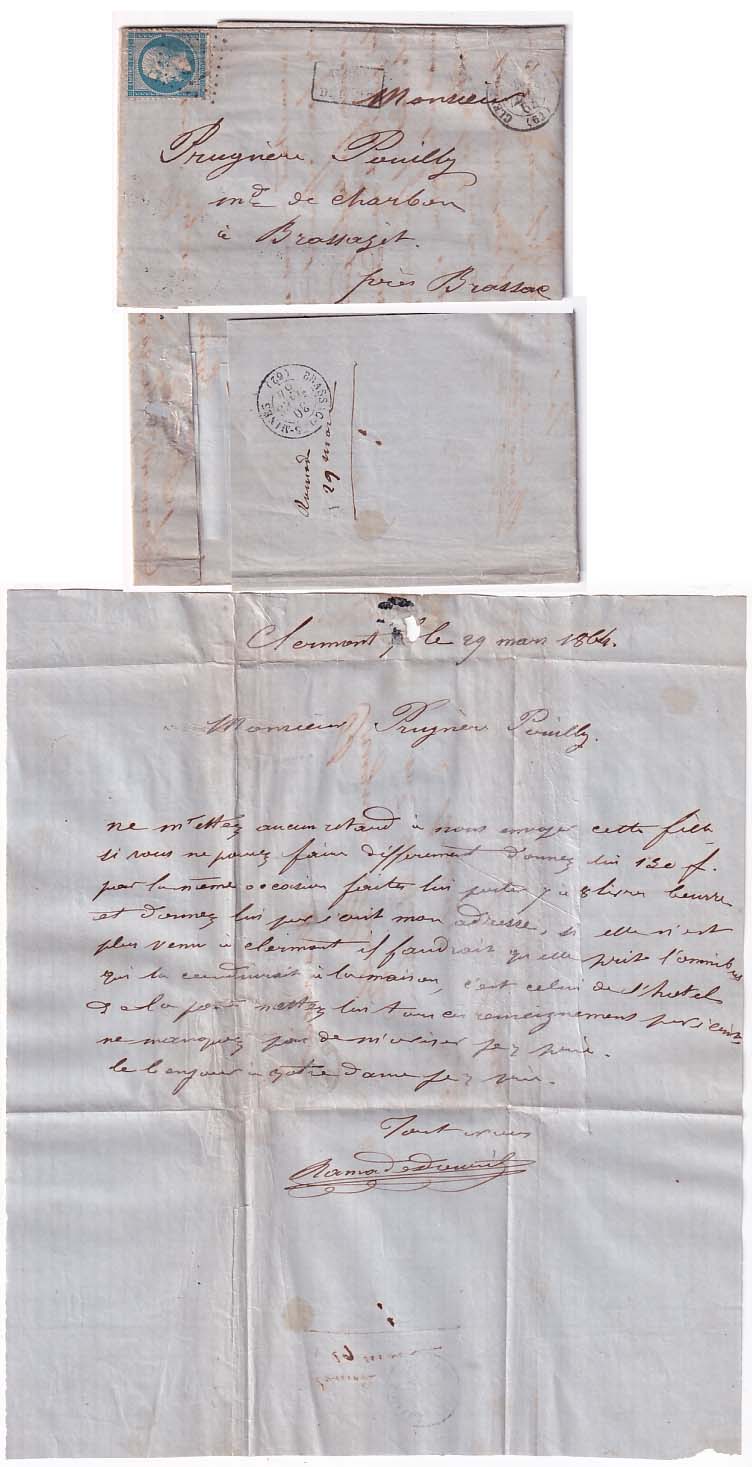 Monsieur
Prugnère Pouilly
md de charbon
à Brassaget.
près Brassac
CLE (62)
64
BRASSAC-LES-MINES (62)
30
MARS
64
29 mars
Clermont fd le 29 mars 1864.
Monsieur Prugnère Pouilly.
ne mettez aucun retard à nous envoyer cette fille
si vous ne pouvez faire différemment donnez lui 120 f.
par la même occasion faites lui porter 7 à 8 livres beurre
et donnez lui par écrit mon adresse, si elle n'est
plus venu à clermont il faudrait qu'elle prit l'omnibus
qui la conduirait à la maison, c'est celui de l'hotel
de la poste mettez lui tous ces renseignement par écrit
ne manquez pas de m'aviser je vous prie.
le bonjour à votre dame je vous prie.
Tout à vous